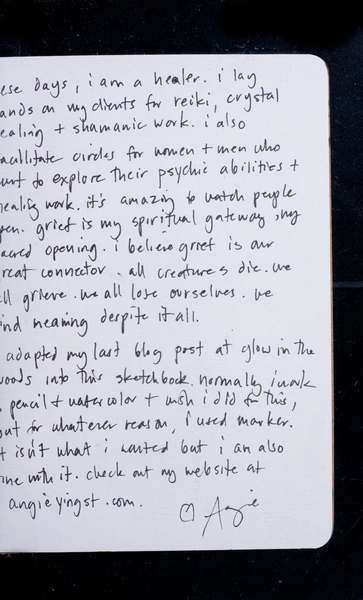 ese days, i am a healer. i lay
ands on my clients for reiki, crystal
ealing + shamanic work. i also
acilitate circles for women + men who
unt to explore their psychic abilities +
healing work. it's amazing to watch people
pen. grief is my spiritual gateway, my
acred opening. i believe grief is our
reat connector. all creatures die. we
ll grieve. we all lose ourselves. we
ind meaning despite it all.
adapted my last blog post at glow in the
woods into this sketchbook. normally i work
pencil + watercolor + wish i did for this,
but for whatever reason, i used marker.
t isn't what i wanted but i am also
ine with it. check out my website at
angieyingst.com.
♡ Angie